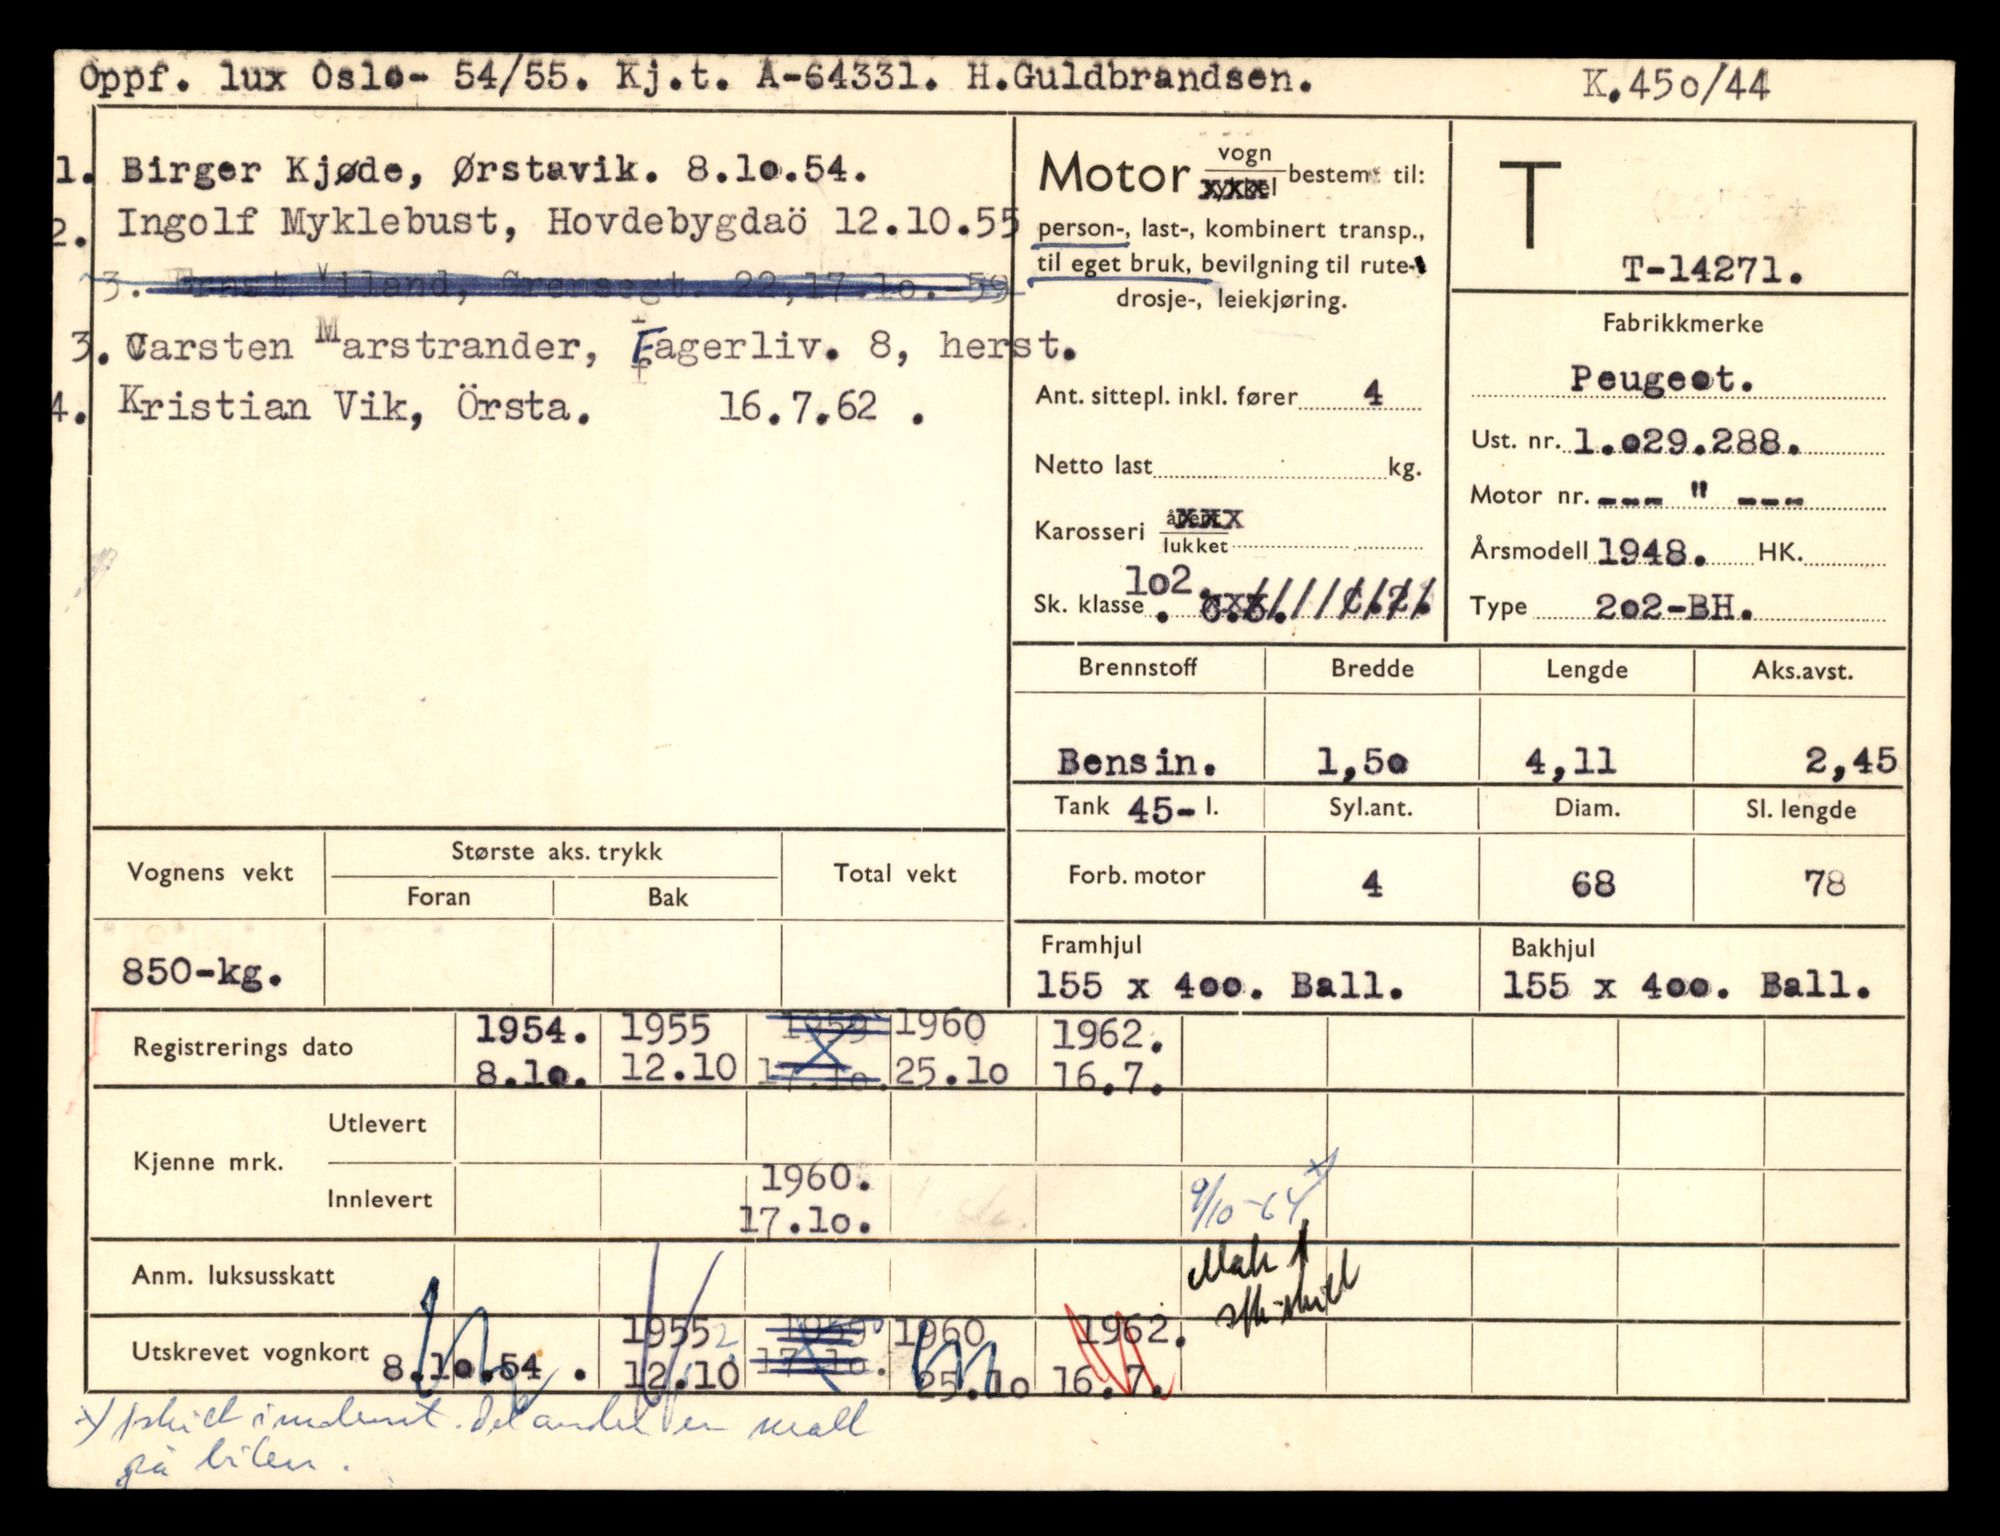 Oppf. lux Oslo- 54/55. Kj.t. A-64331. H.Guldbrandsen. K.45o/44
1. Birger Kjøde, Ørstavik. 8.1o.54.
2. Ingolf Myklebust, Hovdebygdaö 12.10.55
3. Viland, Grensegt. 22,17.1o.-59
3. Carsten Marstrander, Fagerliv. 8, herst.
4. Kristian Vik, Örsta. 16.7.62 .
Motor vogn bestemt til:
person-, last-, kombinert transp.,
til eget bruk, bevilgning til rute-
drosje-, leiekjøring.
Ant. sittepl. inkl. fører 4
Netto last kg.
Karosseri åpent xxx
lukket
Sk. klasse 1o2.
T
T-14271.
Fabrikkmerke
Peugeot.
Ust. nr. 1.o29.288.
Motor nr. --- " ---
Årsmodell 1948. HK.
Type 2o2-BH.
Brennstoff Bredde Lengde Aks.avst.
Bensin. 1,5o 4,11 2,45
Tank 45- l. Syl.ant. Diam. Sl. lengde
Forb. motor 4 68 78
Framhjul Bakhjul
155 x 4oo. Ball. 155 x 4oo. Ball.
Vognens vekt Største aks. trykk Total vekt
Foran Bak
850-kg.
Registrerings dato 1954. 1955 1959 1960 1962.
8.1o. 12.10 17.1o. 25.1o 16.7.
Kjenne mrk. Utlevert
Innlevert 1960. 9/10-64 x)
17.1o.
Anm. luksusskatt
Utskrevet vognkort 8.1o.54 . 1955 1959 1960 1962.
12.10 17.1o. 25.1o 16.7.
x) skilt Det andre er
på bilen.